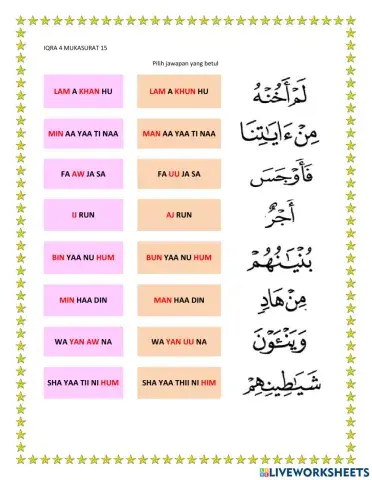 IQRA 4 MUKASURAT 15
Pilih jawapan yang betul
LAM A KHAN HU LAM A KHUN HU لَمْ أَخُنْهُ
MIN AA YAA TI NAA MAN AA YAA TI NAA مِنْ ءَايَـٰتِنَا
FA AW JA SA FA UU JA SA فَأَوْجَسَ
IJ RUN AJ RUN أَجْرٌ
BIN YAA NU HUM BUN YAA NU HUM بُنْيَـٰنُهُمْ
MIN HAA DIN MAN HAA DIN مِنْ هَادٍ
WA YAN AW NA WA YAN UU NA وَيَنْـَٔوْنَ
SHA YAA TII NI HUM SHA YAA THII NI HIM شَيَـٰطِينِهِمْ
LIVEWORKSHEETS